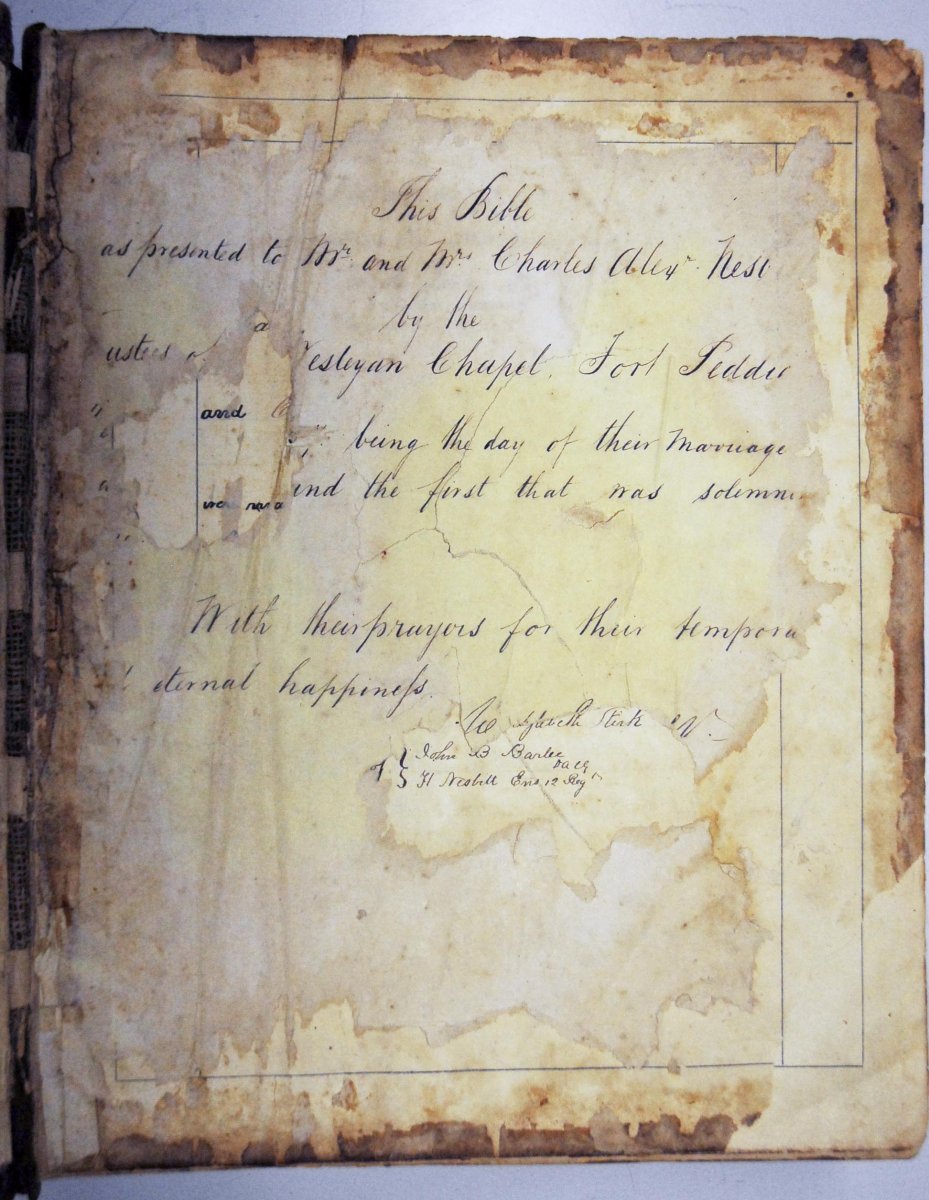 This Bible
as presented to Mr. and Mrs Charles Alexr. Nesb
by the
ustees of esleyan Chapel, Fort Peddie
and
being the day of their Marriage
and the first that was solemni
With their prayers for their tempora
eternal happiness.
John B Barlee
H Nesbitt Ens 12 Regt